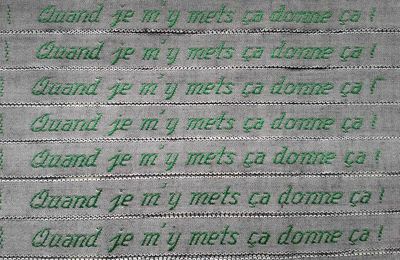 Quand je m'y mets ça donne ça !
Quand je m'y mets ça donne ça !
Quand je m'y mets ça donne ça !
Quand je m'y mets ça donne ça !
Quand je m'y mets ça donne ça !
Quand je m'y mets ça donne ça !
Quand je m'y mets ça donne ça !